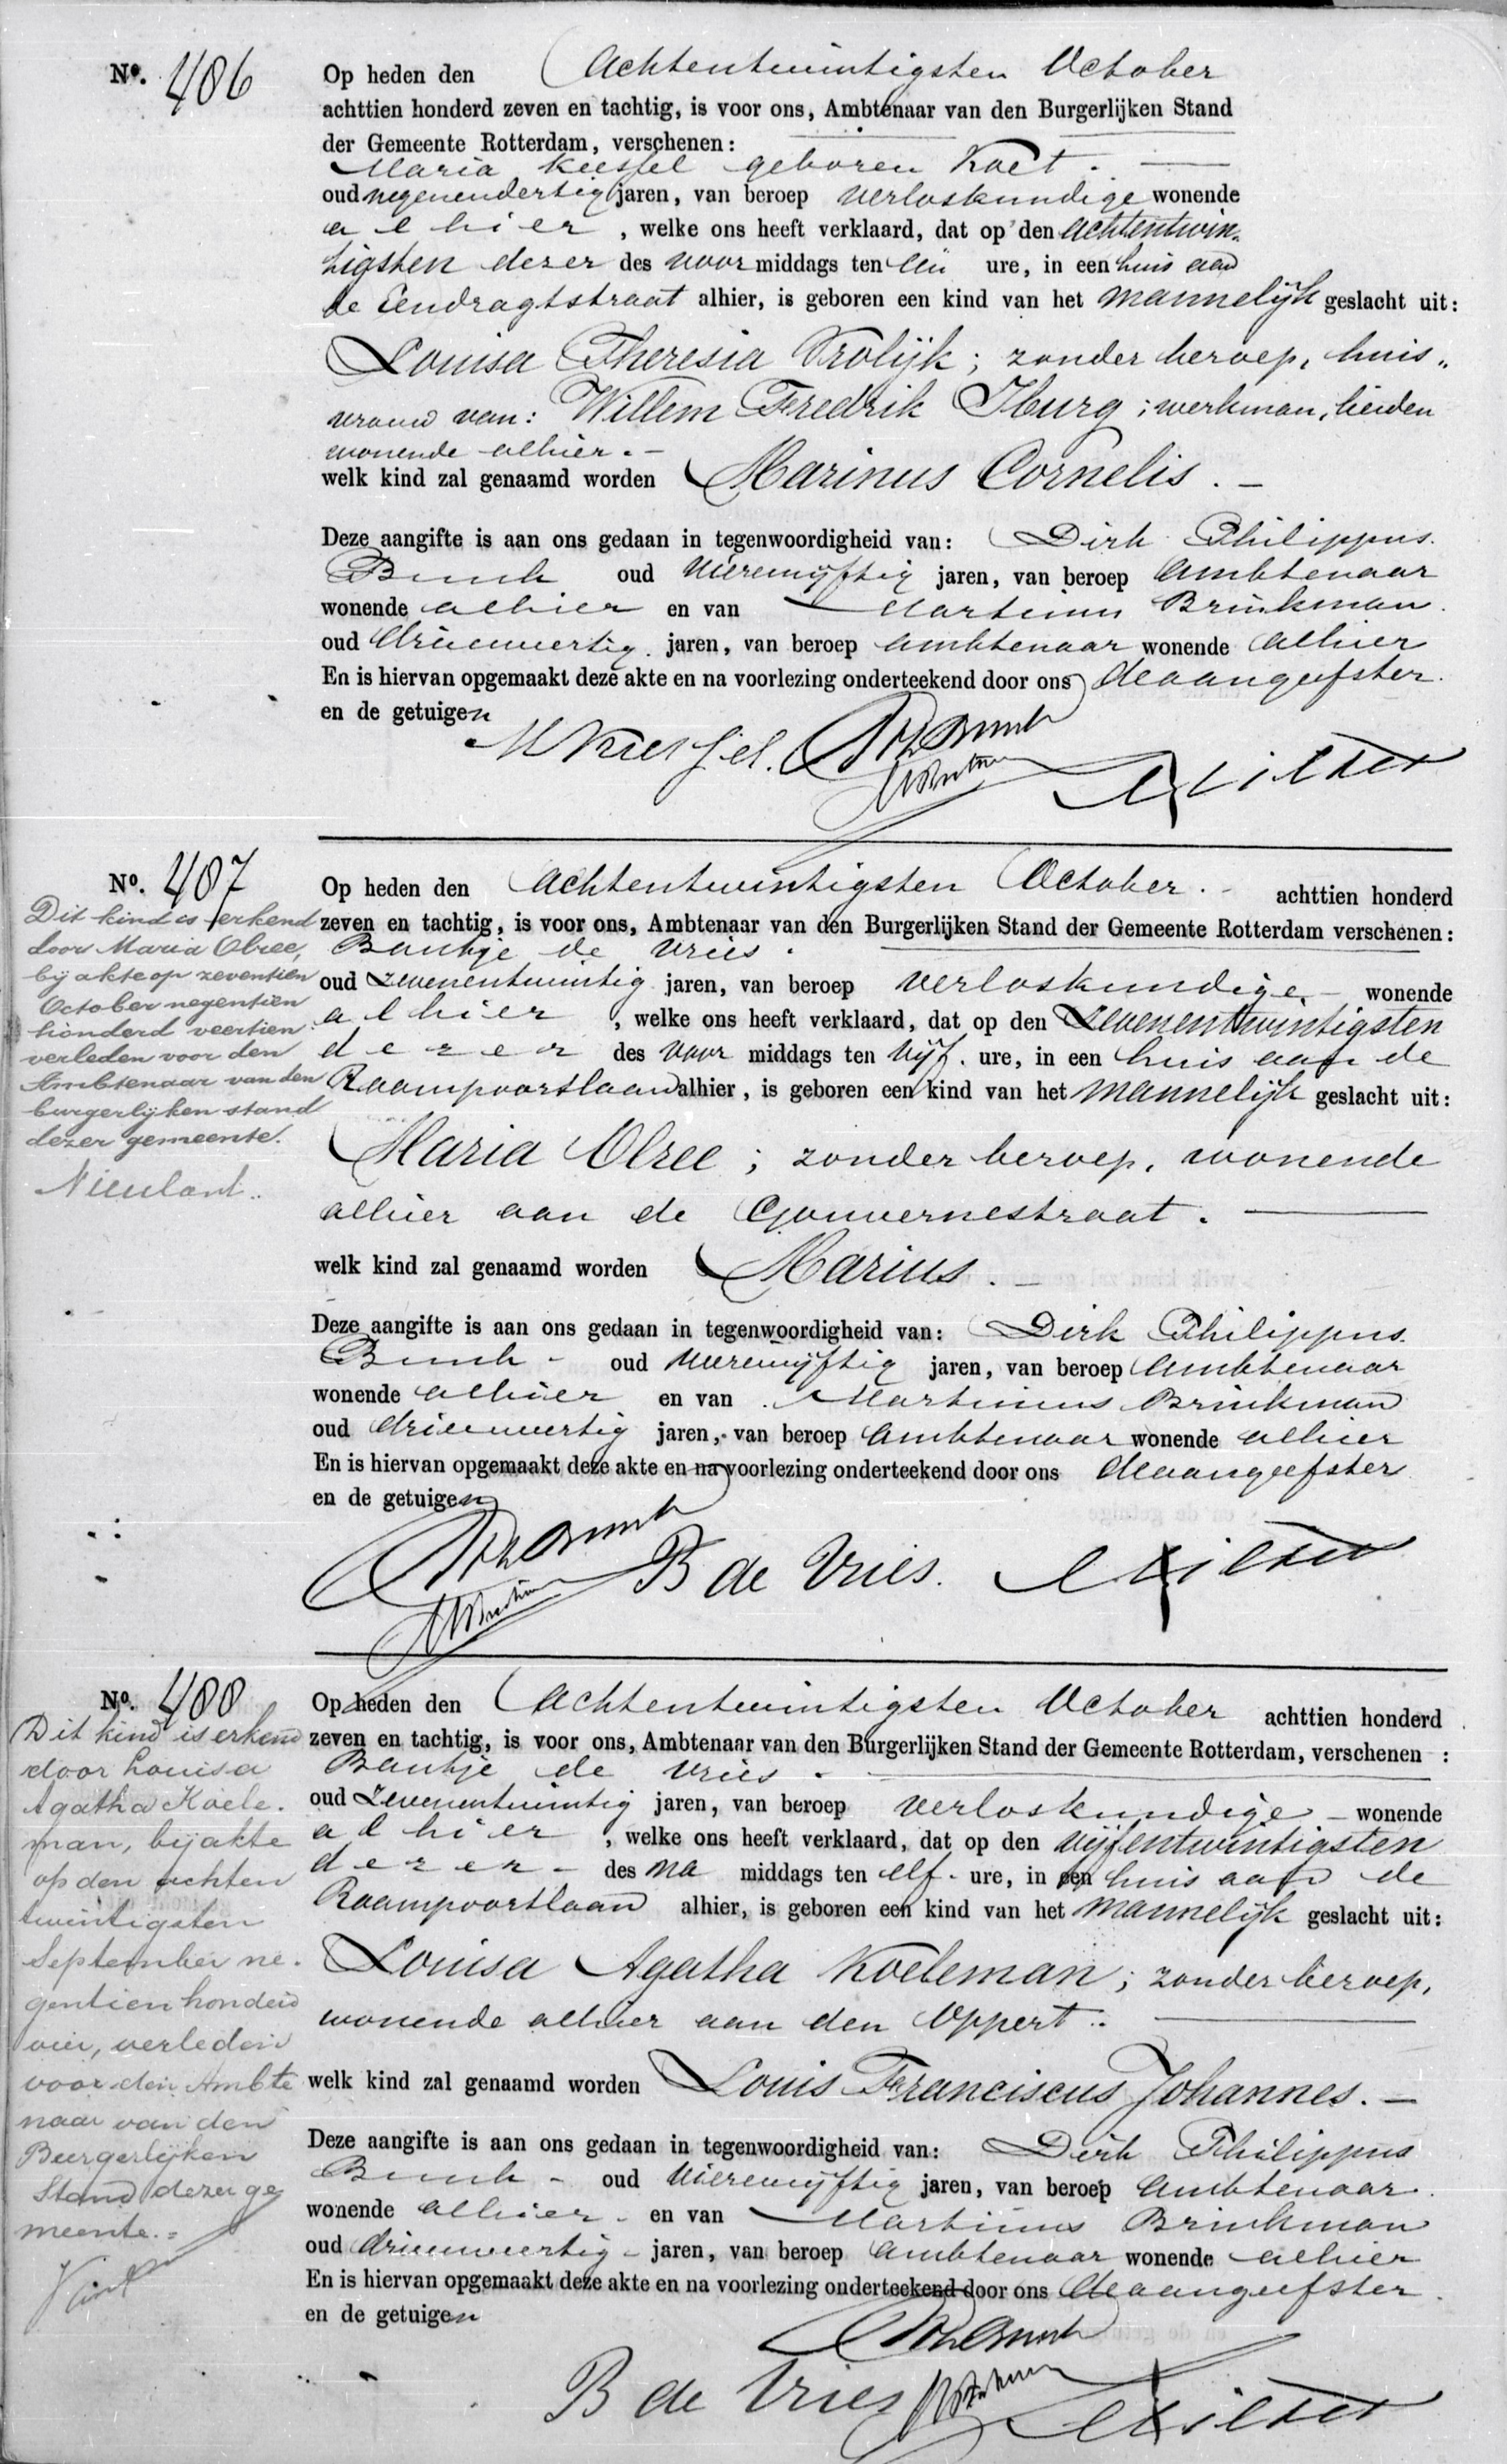 No. 486
Op heden den Achtentwintigsten October
achttien honderd zeven en tachtig, is voor ons, Ambtenaar van den Burgerlijken Stand
der Gemeente Rotterdam, verschenen:
Maria Kiessel geboren Koet.
oud negenendertig jaren, van beroep verloskundige wonende
alhier, welke ons heeft verklaard, dat op den achtentwin-
tigsten dezer des voor middags ten één ure, in een huis aan
de Eendragtstraat alhier, is geboren een kind van het mannelijk geslacht uit:
Louisa Theresia Vrolijk; zonder beroep, huis-
vrouw van: Willem Fredrik Iburg; werkman, beiden
wonende alhier. -
welk kind zal genaamd worden Marinus Cornelis. -
Deze aangifte is aan ons gedaan in tegenwoordigheid van: Dirk Philippus
Bunk oud vierenvijftig jaren, van beroep Ambtenaar
wonende alhier en van Martinus Brinkman.
oud drieenveertig jaren, van beroep ambtenaar wonende alhier
En is hiervan opgemaakt deze akte en na voorlezing onderteekend door ons de aangeefster.
en de getuigen
M Kiessel.
No. 487
Op heden den Achtentwintigsten October. - achttien honderd
zeven en tachtig, is voor ons, Ambtenaar van den Burgerlijken Stand der Gemeente Rotterdam verschenen:
Baukje de Vries.
oud zevenentwintig jaren, van beroep verloskundige - wonende
alhier, welke ons heeft verklaard, dat op den zevenentwintigsten
dezer des voor middags ten vijf. ure, in een huis aan de
Raampoortlaan alhier, is geboren een kind van het mannelijk geslacht uit:
Maria Olree; zonder beroep, wonende
alhier aan de Gouvernestraat.
welk kind zal genaamd worden Marius. -
Deze aangifte is aan ons gedaan in tegenwoordigheid van: Dirk Philippus
Bunk - oud vierenvijftig jaren, van beroep Ambtenaar
wonende alhier en van Martinus Brinkman
oud drieenveertig jaren, van beroep Ambtenaar wonende alhier
En is hiervan opgemaakt deze akte en na voorlezing onderteekend door ons de aangeefster
en de getuigen
B de Vries.
Dit kind is erkend
door Maria Olree,
bij akte op zeventien
October negentien
honderd veertien
verleden voor den
Ambtenaar van den
burgerlijken stand
dezer gemeente.
Nieulant.
No. 488
Op heden den Achtentwintigsten October achttien honderd
zeven en tachtig, is voor ons, Ambtenaar van den Burgerlijken Stand der Gemeente Rotterdam, verschenen :
Baukje de Vries -
oud zevenentwintig jaren, van beroep verloskundige - wonende
alhier, welke ons heeft verklaard, dat op den vijfentwintigsten
dezer - des na middags ten elf - ure, in een huis aan de
Raampoortlaan alhier, is geboren een kind van het mannelijk geslacht uit:
Louisa Agatha Koeleman; zonder beroep,
wonende alhier aan den Oppert.
welk kind zal genaamd worden Louis Franciscus Johannes. -
Deze aangifte is aan ons gedaan in tegenwoordigheid van: Dirk Philippus
Bunk - oud vierenvijftig jaren, van beroep Ambtenaar.
wonende alhier - en van Martinus Brinkman
oud drieenveertig - jaren, van beroep Ambtenaar wonende alhier
En is hiervan opgemaakt deze akte en na voorlezing onderteekend door ons de aangeefster.
en de getuigen
B de Vries
Dit kind is erkend
door Louisa
Agatha Koele-
man, bij akte
op den achten
twintigsten
September ne-
gentien honderd
vier, verleden
voor den Ambte
naar van den
Burgerlijken
Stand dezer ge
meente. =